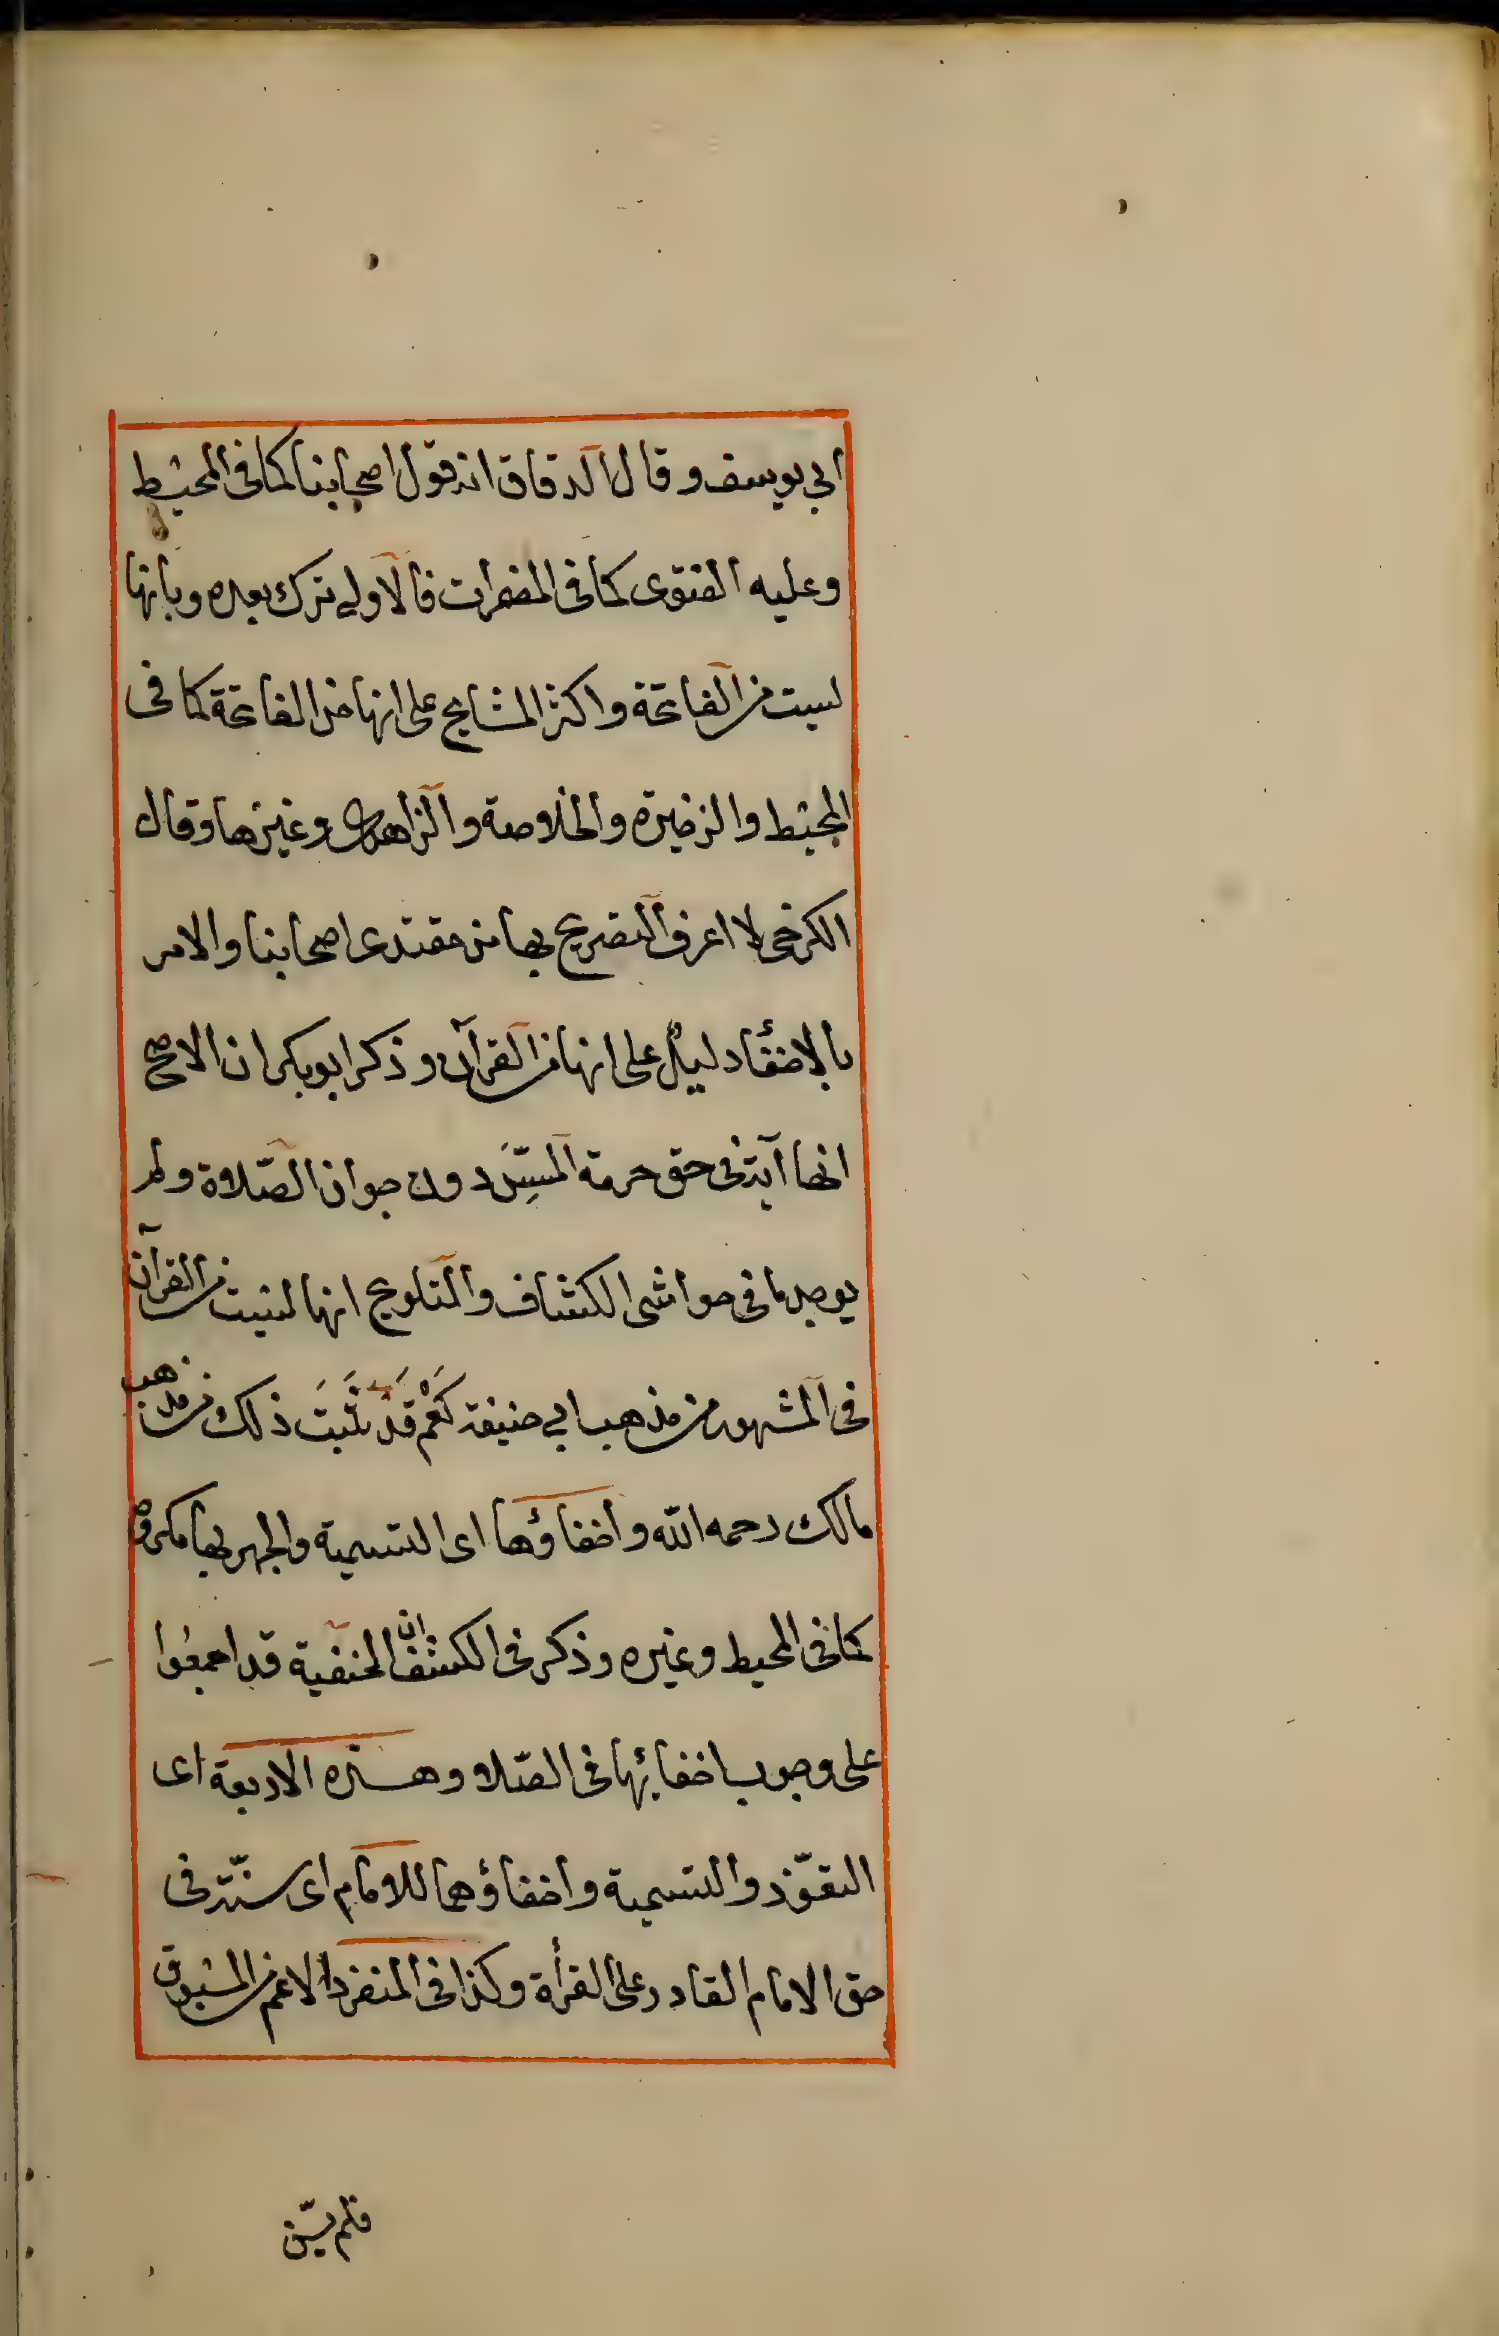 ابي يوسف وقال الدقاق انه قول اصحابنا كما في المحيط
وعليه الفتوى كما في المضمرات فالاولى ترك بعده وبانها
ليست من الفاتحة واكثر المشايخ على انها من الفاتحة كما في
المحيط والذخيرة والخلاصة والزاهدي وغيرها وقال
الكرخي لا اعرف التصريح بها من مقتدى اصحابنا والامر
بالاخفاء دليل على انها من القرآن وذكر ابو بكر ان الاصح
انها آية في حق حرمة المسّ دون جواز الصّلاة ولم
يوجد ما في حواشى الكشاف والتلويح انها ليست من القرآن
في المشهور من مذهب ابي حنيفة نَعَمْ قَدْ ثَبَتَ ذلك من مذهب
مالك رحمه الله واخفاؤها اى التسمية والجهر بها مكروه
كما في المحيط وغيره وذكر في الكشف ان الحنفية قد اجمعوا
على وجوب اخفائها في الصّلاه وهذه الاربعة اى
التعوّذ والتسمية واخفاؤهما للامام اى سنّة في
حق الامام القادر على القرأة وكذا في المنفرد الاعم من المسبوق
فلم يسنّ